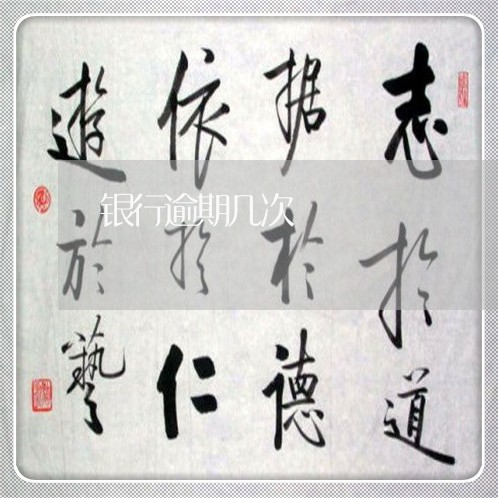 志於道
据於德
依於仁
遊於藝
银行逾期几次